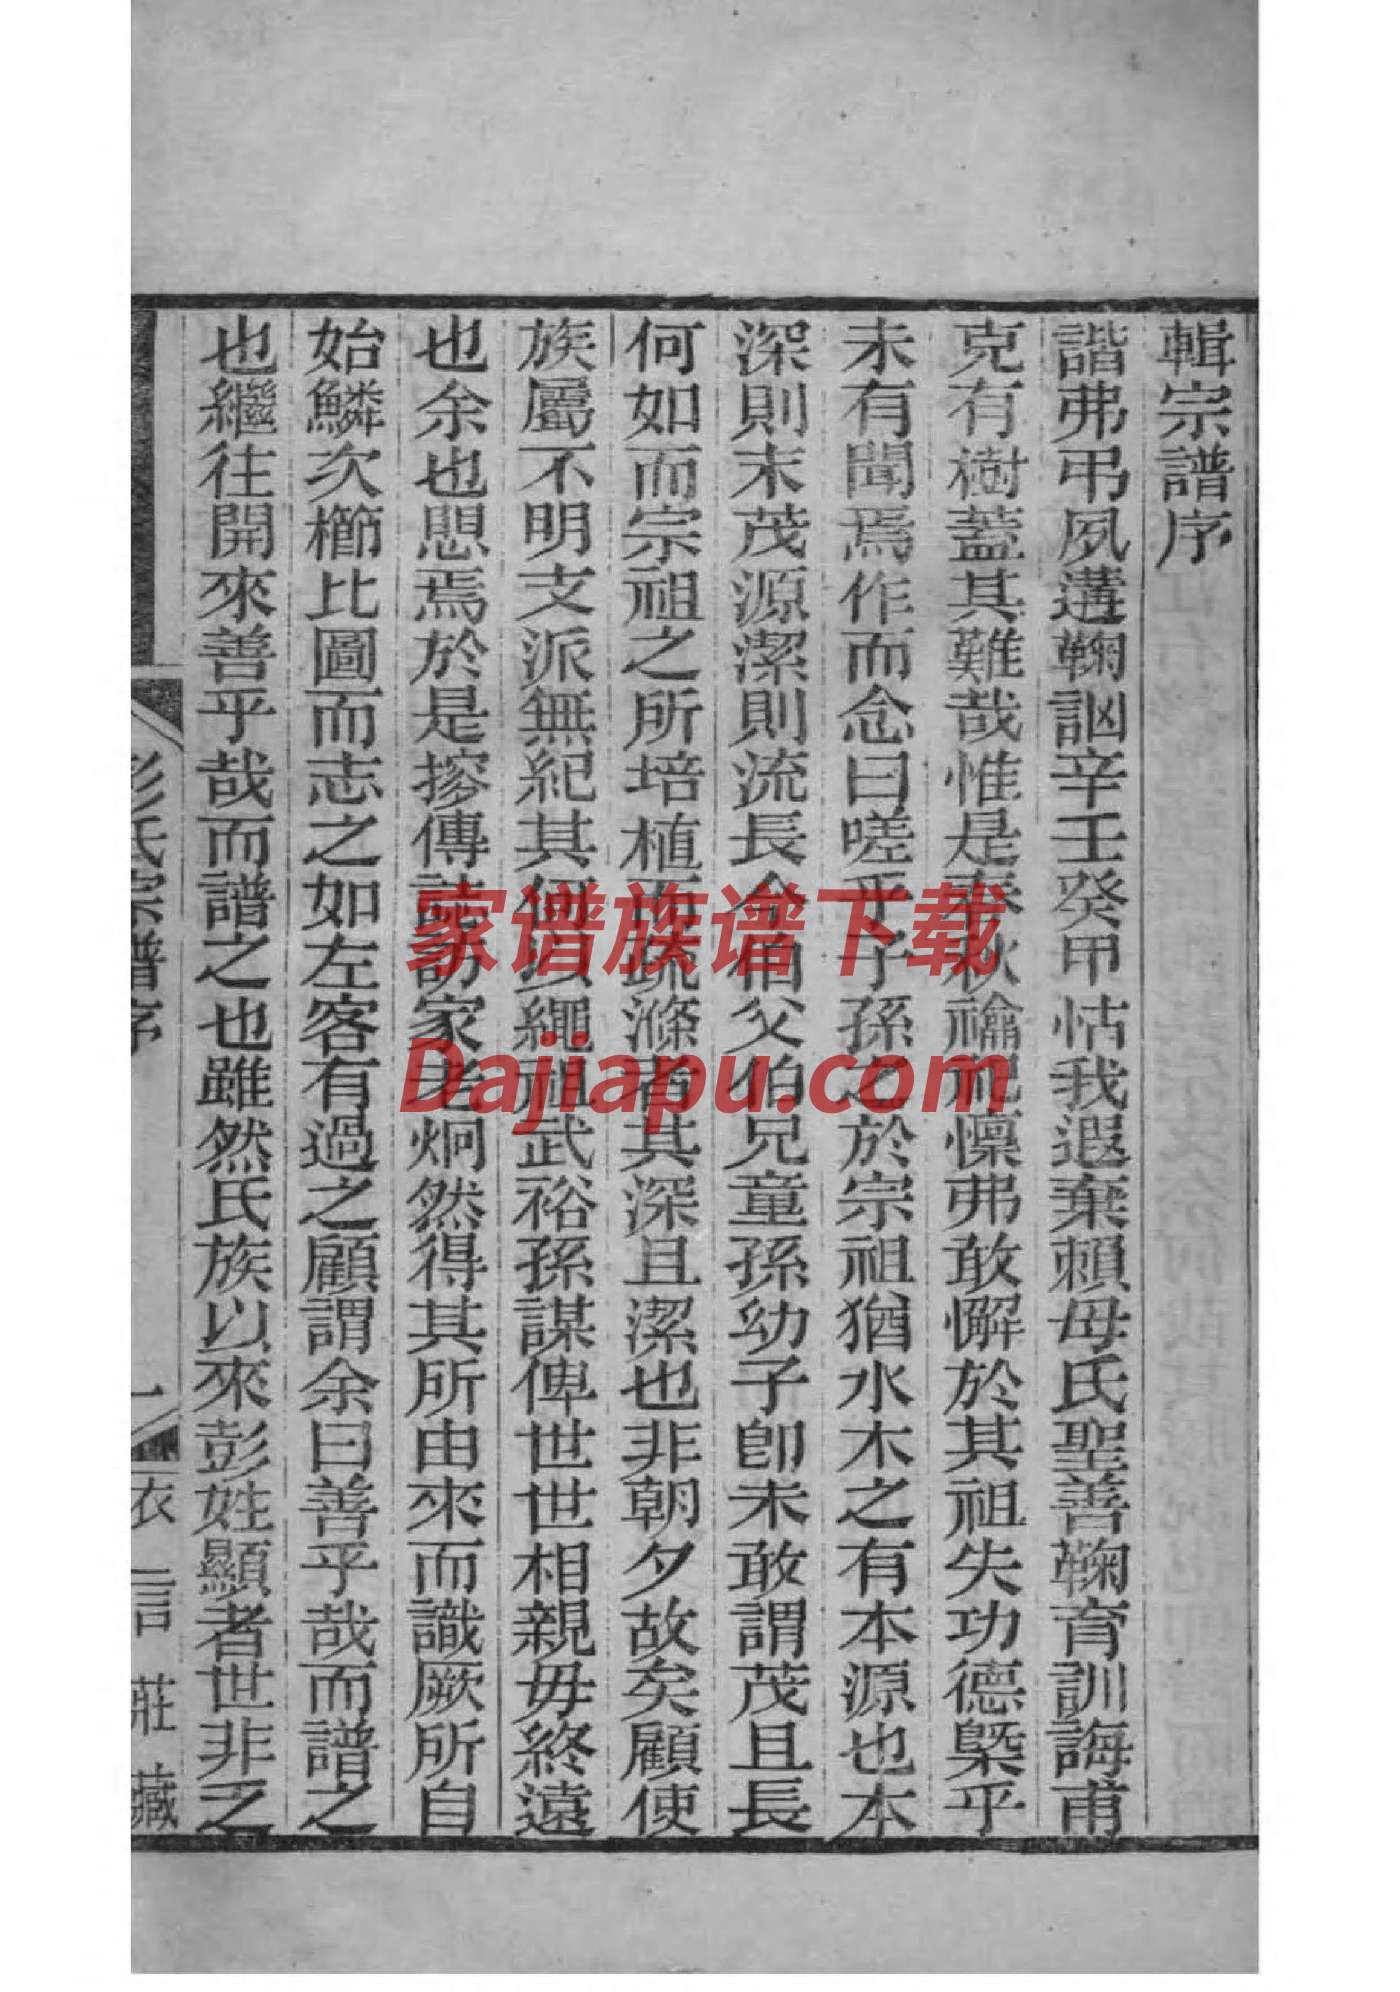 輯宗譜序
諧弗弔夙遘鞠訩辛壬癸甲怙我遐棄賴母氏聖善鞠育訓誨甫
克有樹蓋其難哉惟是春秋禴祀懍弗敢懈於其祖失功德槩乎
未有聞焉作而念曰嗟乎子孫之於宗祖猶水木之有本源也本
深則末茂源潔則流長今相父伯兄童孫幼子卽未敢謂茂且長
何如而宗祖之所培植而疏滌者其深且潔也非朝夕故矣顧使
族屬不明支派無紀其何以繩祖武裕孫謀俾世世相親毋終遠
也余也愳焉於是摉傳誌訪家老炯然得其所由來而識厥所自
始鱗次櫛比圖而志之如左客有過之顧謂余曰善乎哉而譜之
也繼往開來善乎哉而譜之也雖然氏族以來彭姓顯者世非乏
彭氏宗譜序
一
衣言莊藏
家谱族谱下载
Dajiapu.com